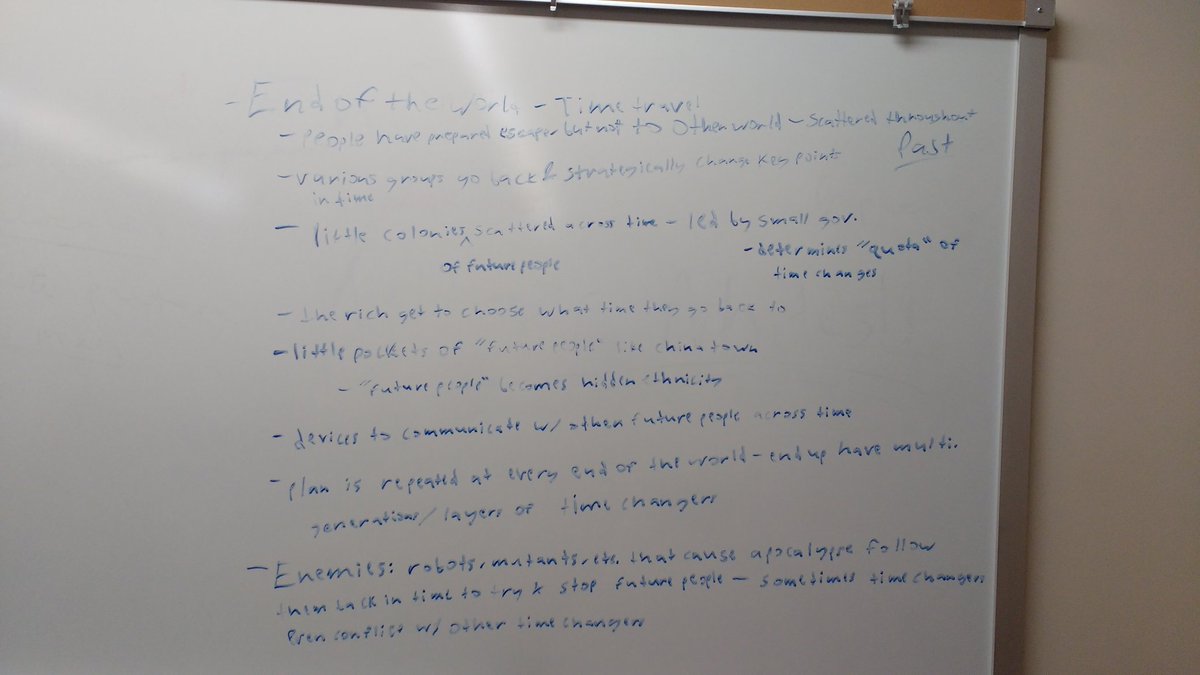 - End of the world - Time travel
- People have prepared escape but not to other world - scattered throughout
Past
- various groups go back & strategically change key points
in time
- little colonies ^ scattered across time - led by small gov.
of future people
- determines "quota" of
time changes
- the rich get to choose what time they go back to
- little pockets of "future people" like chinatown
- "future people" becomes hidden ethnicity
- devices to communicate w/ other future people across time
- plan is repeated at every end of the world - end up have multi.
generations/layers of time changers
- Enemies: robots, mutants, etc. that cause apocalypse follow
them back in time to try & stop future people - sometimes time changers
even conflict w/ other time changers